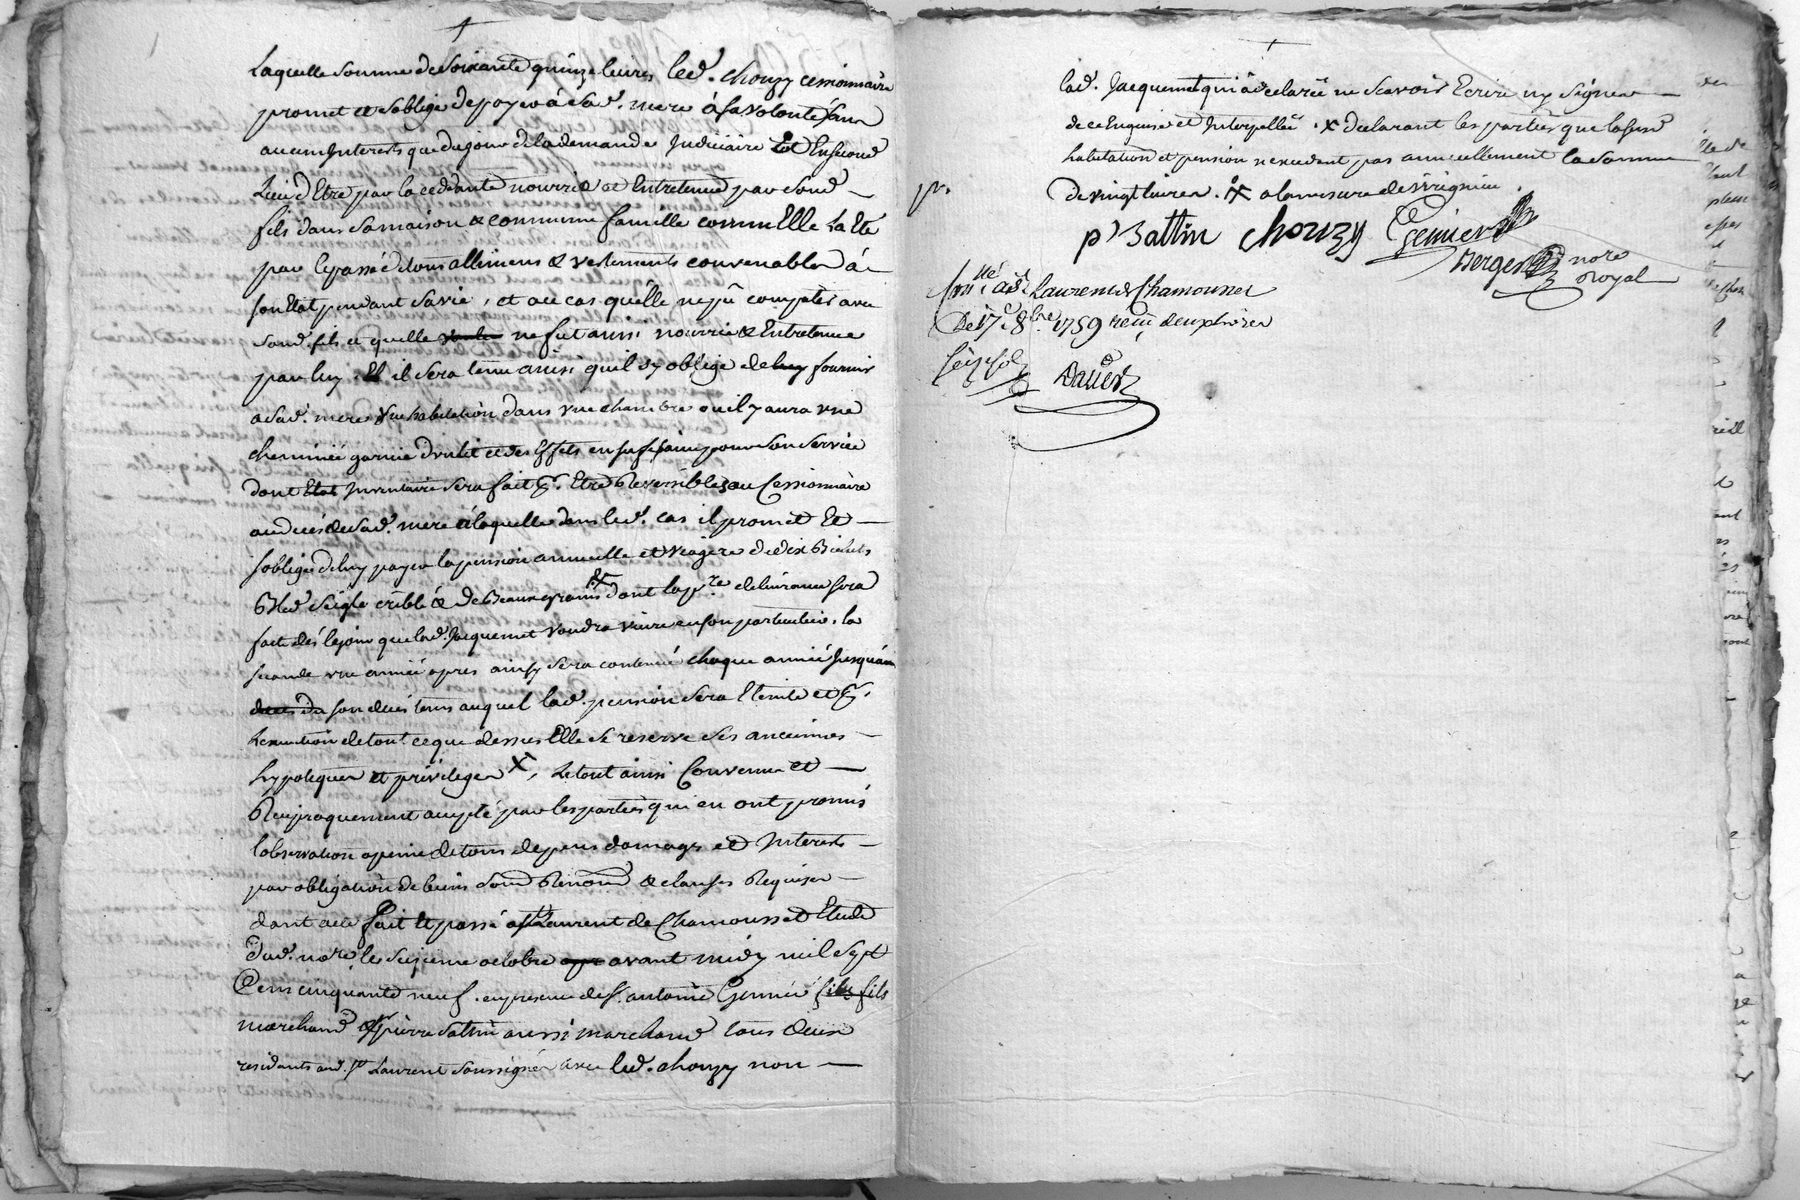 Laquelle somme de soixante quinze livres led. chouzy cessionnaire
promet et soblige de payer à sad. mere à sa volonté sans
aucun Interests que du jour de la demande Judiciaire Et En second
Lieu dEtre par la cedante nourrie et Entretenue par sond.
fils dans sa maison & commune famille comme Elle la Eté
par le passé de tous allimens & vestements convenables à
son Etat pendant sa vie, et au cas quelle ne pû compater avec
sond. fils et quelle ne fut aussi nourrie & Entretenue
par luy. il sera tenu ainsi quil sy oblige de fournir
a sad. mere une habitation dans une chambre ou il y aura une
cheminée garnie dun lit et des Effets en suffisant pour son service
dont Etat Inventaire sera fait pr. Etre Reversibles au Cessionnaire
au deces de sad. mere à laquelle dans led. cas il promet Et
soblige de luy payer la pension annuelle et viagere de dix Bichets
Bled seigle criblé & de Beaux grains dont la pre. delivrance sera
faite dès le jour que lad. Jacquemet voudra vivre en son particulier. la
seconde une année apres ainsy sera continué chaque année Jusquau
son deces tems auquel lad. pension sera Eteinte et pr.
Lexecution de tout ce que dessus Elle se reserve ses anciennes
hypoteques et privileges x, Le tout ainsi Convenu et
Reciproquement accepté par les parties qui en ont promis
lobservation a peine de tous depens domages et Interests
par obligation de biens soumd Renond & clauses Requises
dont acte fait et passé a st Laurent de Chamousset Etude
dud. nore. le seizieme octobre avant midy mil sept
Cent cinquante neuf. en presence de s. antoine Genier fils
marchand & pierre Battin aussi marchand tous deux
residants aud. st Laurent soussignés avec led. chouzy non
lad. Jacquemet qui à declaré ne scavoir Ecrire ny signer
de ce Enquise et Interpellée. x declarant les parties que lasusd.
habitation et pension nexcedent pas annuellement la somme
de vingt livres. x a la mesure de virignieu.
p. Battin chouzy Genier fils
Berger nore
Royal
Conllé à st Laurent de Chamousset
Le 17e. 8bre. 1759 reçu deux livres
seize sols